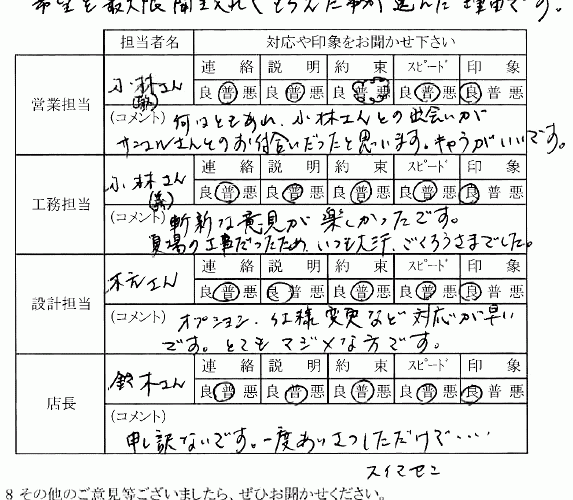 希望を最大限聞き入れてもらえた事が選んだ理由です。
担当者名 対応や印象をお聞かせ下さい
営業担当 小林さん 連絡 説明 約束 スピード 印象
良 普 悪 良 普 悪 良 普 悪 良 普 悪 良 普 悪
(コメント) 何はともあれ、小林さんとの出会いが
サンエルさんとのお付合いだったと思います。キャラがいいです。
工務担当 小林さん 連絡 説明 約束 スピード 印象
良 普 悪 良 普 悪 良 普 悪 良 普 悪 良 普 悪
(コメント) 斬新な意見が楽しかったです。
夏場の工事だったため、いつも大汗、ごくろうさまでした。
設計担当 さん 連絡 説明 約束 スピード 印象
良 普 悪 良 普 悪 良 普 悪 良 普 悪 良 普 悪
(コメント) オプション、仕様変更など対応が早い
です。とてもマジメな方です。
店長 鈴木さん 連絡 説明 約束 スピード 印象
良 普 悪 良 普 悪 良 普 悪 良 普 悪 良 普 悪
(コメント)
申し訳ないです。一度あいさつしただけで・・・・
スイマセン
8 その他のご意見等ございましたら、ぜひお聞かせください。